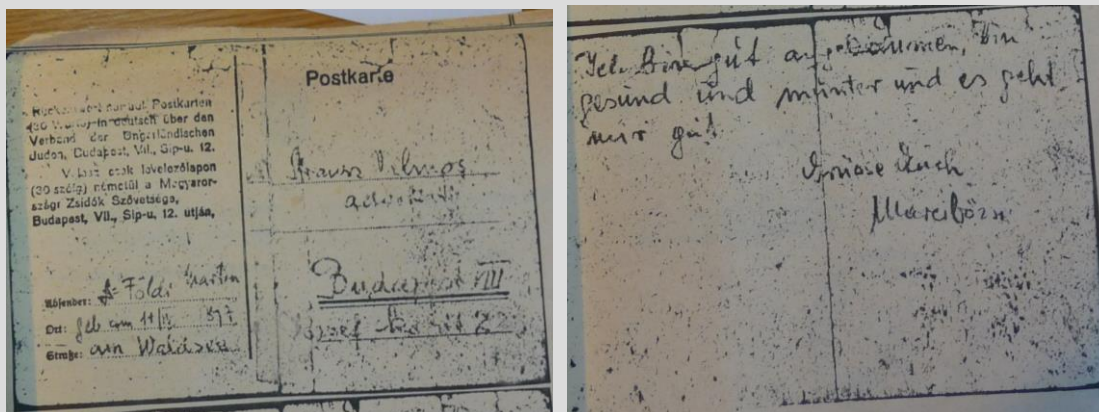 Postkarte
Rückantwort nur auf Postkarten
(30 Worte) in deutsch über den
Verband der Ungarländischen
Juden, Budapest, VII., Sip-u. 12.
Válasz csak levelezőlapon
(30 szóig) németül a Magyaror-
szági Zsidók Szövetsége,
Budapest, VII., Sip-u. 12. utján,
Vilmos
Budapest VIII
József
Absender: Földi Martin
Ort: geb am 11
Straße: am Waldsee
Ich bin gut angekommen, bin
gesund und munter und es geht
mir gut
Küsse Euch